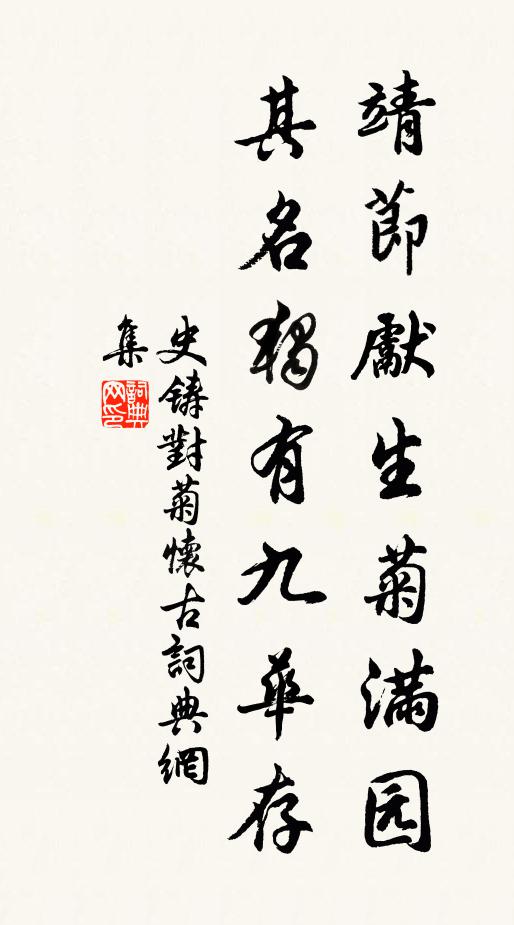 靖節獻生菊满园
其名獨有九華存
史鑄對菊懷古詞典網
集
詞典
网印